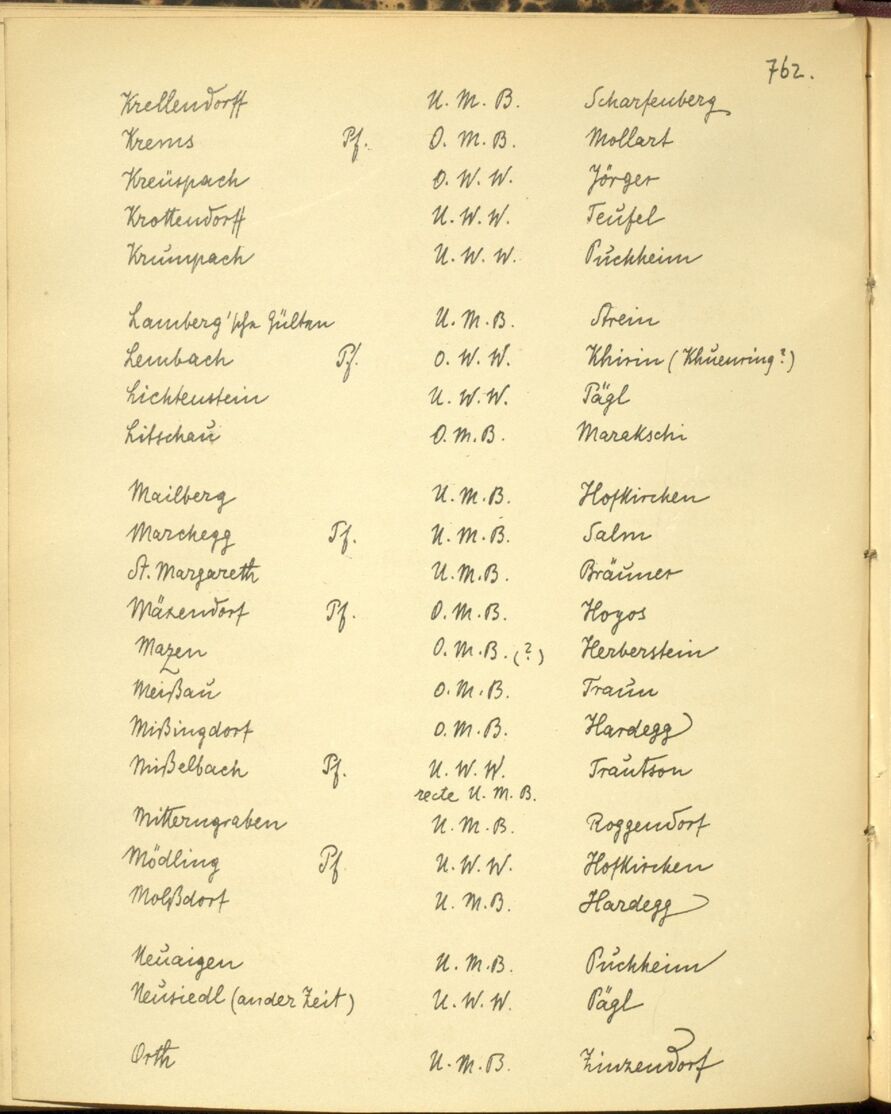 762.
Krellendorff U. M. B. Scharfenberg
Krems Pf. O. M. B. Mollart
Kreüspach O. W. W. Jörger
Krottendorff U. W. W. Teufel
Krumpach U. W. W. Puchheim
Lamberg'sche Gülten U. M. B. Strein
Lembach Pf. O. W. W. Khirin (Khuenring?)
Lichtenstein U. W. W. Pägl
Litschau O. M. B. Marakschi
Mailberg U. M. B. Hofkirchen
Marchegg Pf. U. M. B. Salm
St. Margareth U. M. B. Bräuner
Mäxendorf Pf. O. M. B. Hoyos
Mazen O. M. B. (?) Herberstein
Meißau O. M. B. Traun
Mißingdorf O. M. B. Hardegg
Mißelbach Pf. U. W. W. Trautson
recte U. M. B.
Mitterngraben U. M. B. Roggendorf
Mödling Pf. U. W. W. Hofkirchen
Molßdorf U. M. B. Hardegg
Neuaigen U. M. B. Puchheim
Neusiedl (an der Zeit) U. W. W. Pägl
Orth U. M. B. Zinzendorf